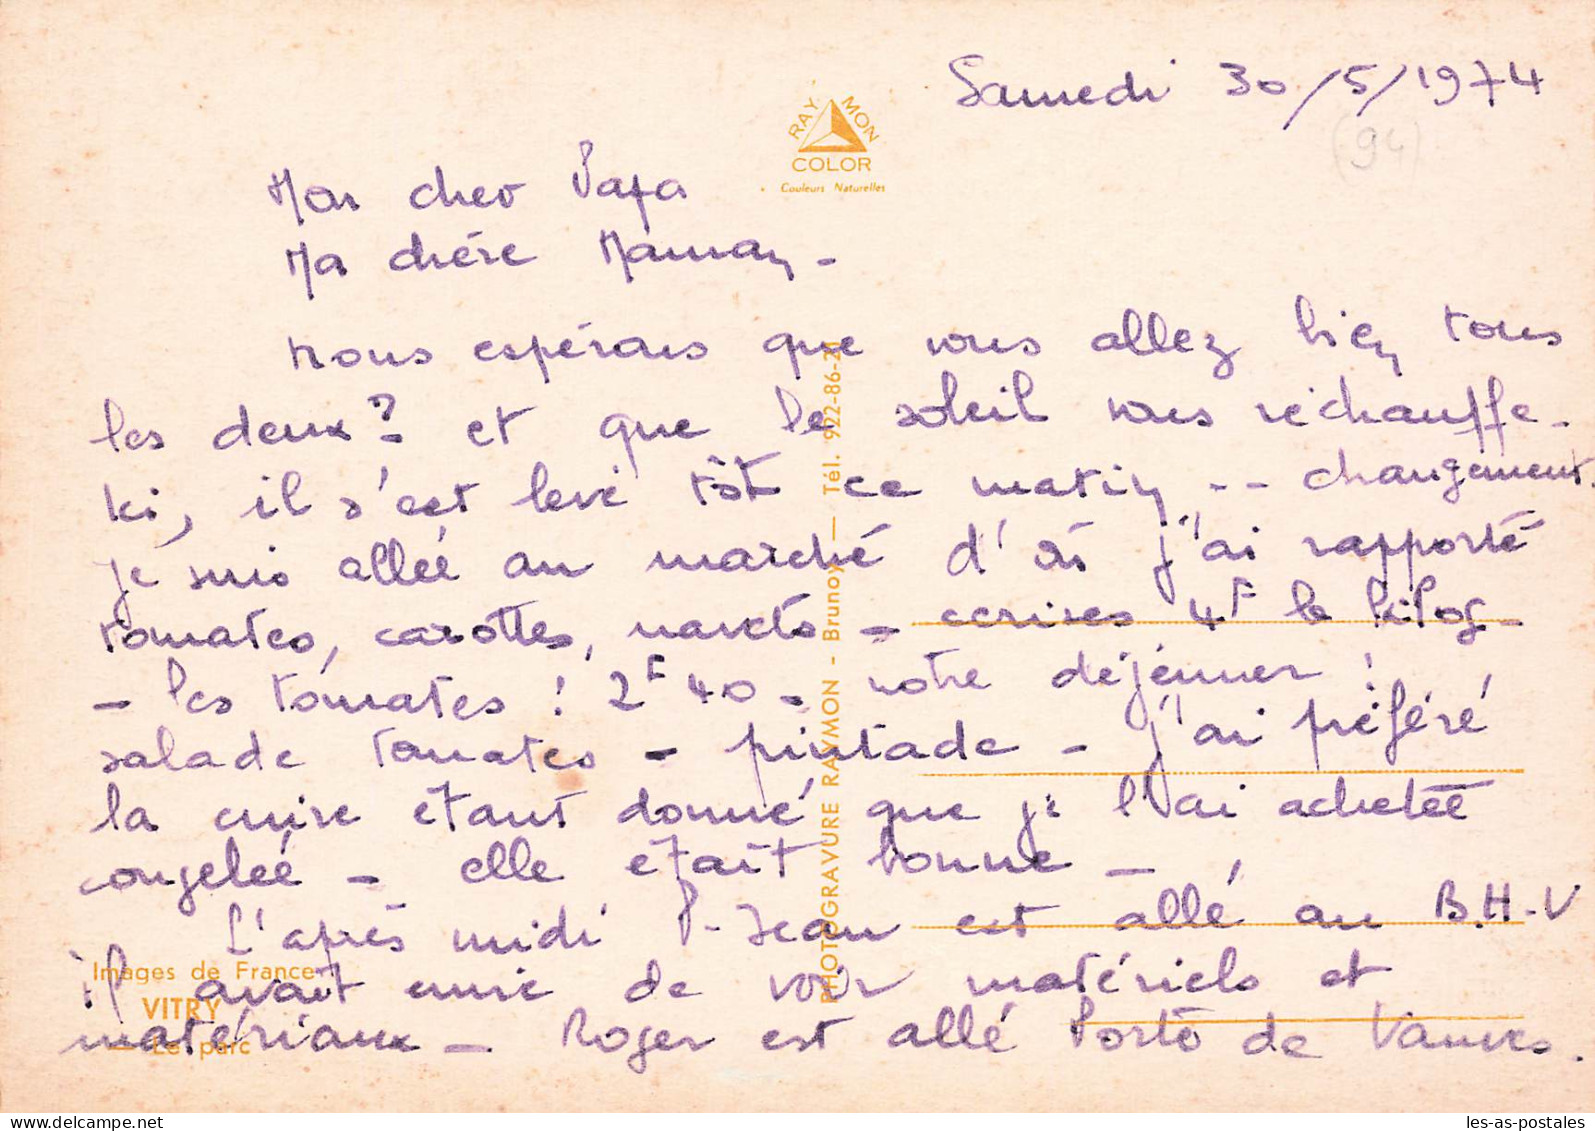 Samedi 30/5/1974
(94)
RAY MON
COLOR
Couleurs Naturelles
Mon cher Papa
Ma chère Maman -
nous espérons que vous allez bien tous
les deux? et que le soleil vous réchauffe -
ici, il s'est levé tôt ce matin -- changement.
je suis allée au marché d' j'ai rapporté
tomates, carottes, navets - cerises 4F le kilog -
- les tomates ! 2F40 - notre déjeuner !
salade tomates - pintade - j'ai préféré
la cuire étant donné que je l'ai achetée
congelée - elle était bonne -
L'après midi P-Jean est allé au B.H.V
il avait envie de voir matériels et
matériaux - Roger est allé Porte de Vanves.
PHOTOGRAVURE RAYMON - Brunoy — Tél. 922-86-20
Images de France
VITRY
Le parc
les-as-postales